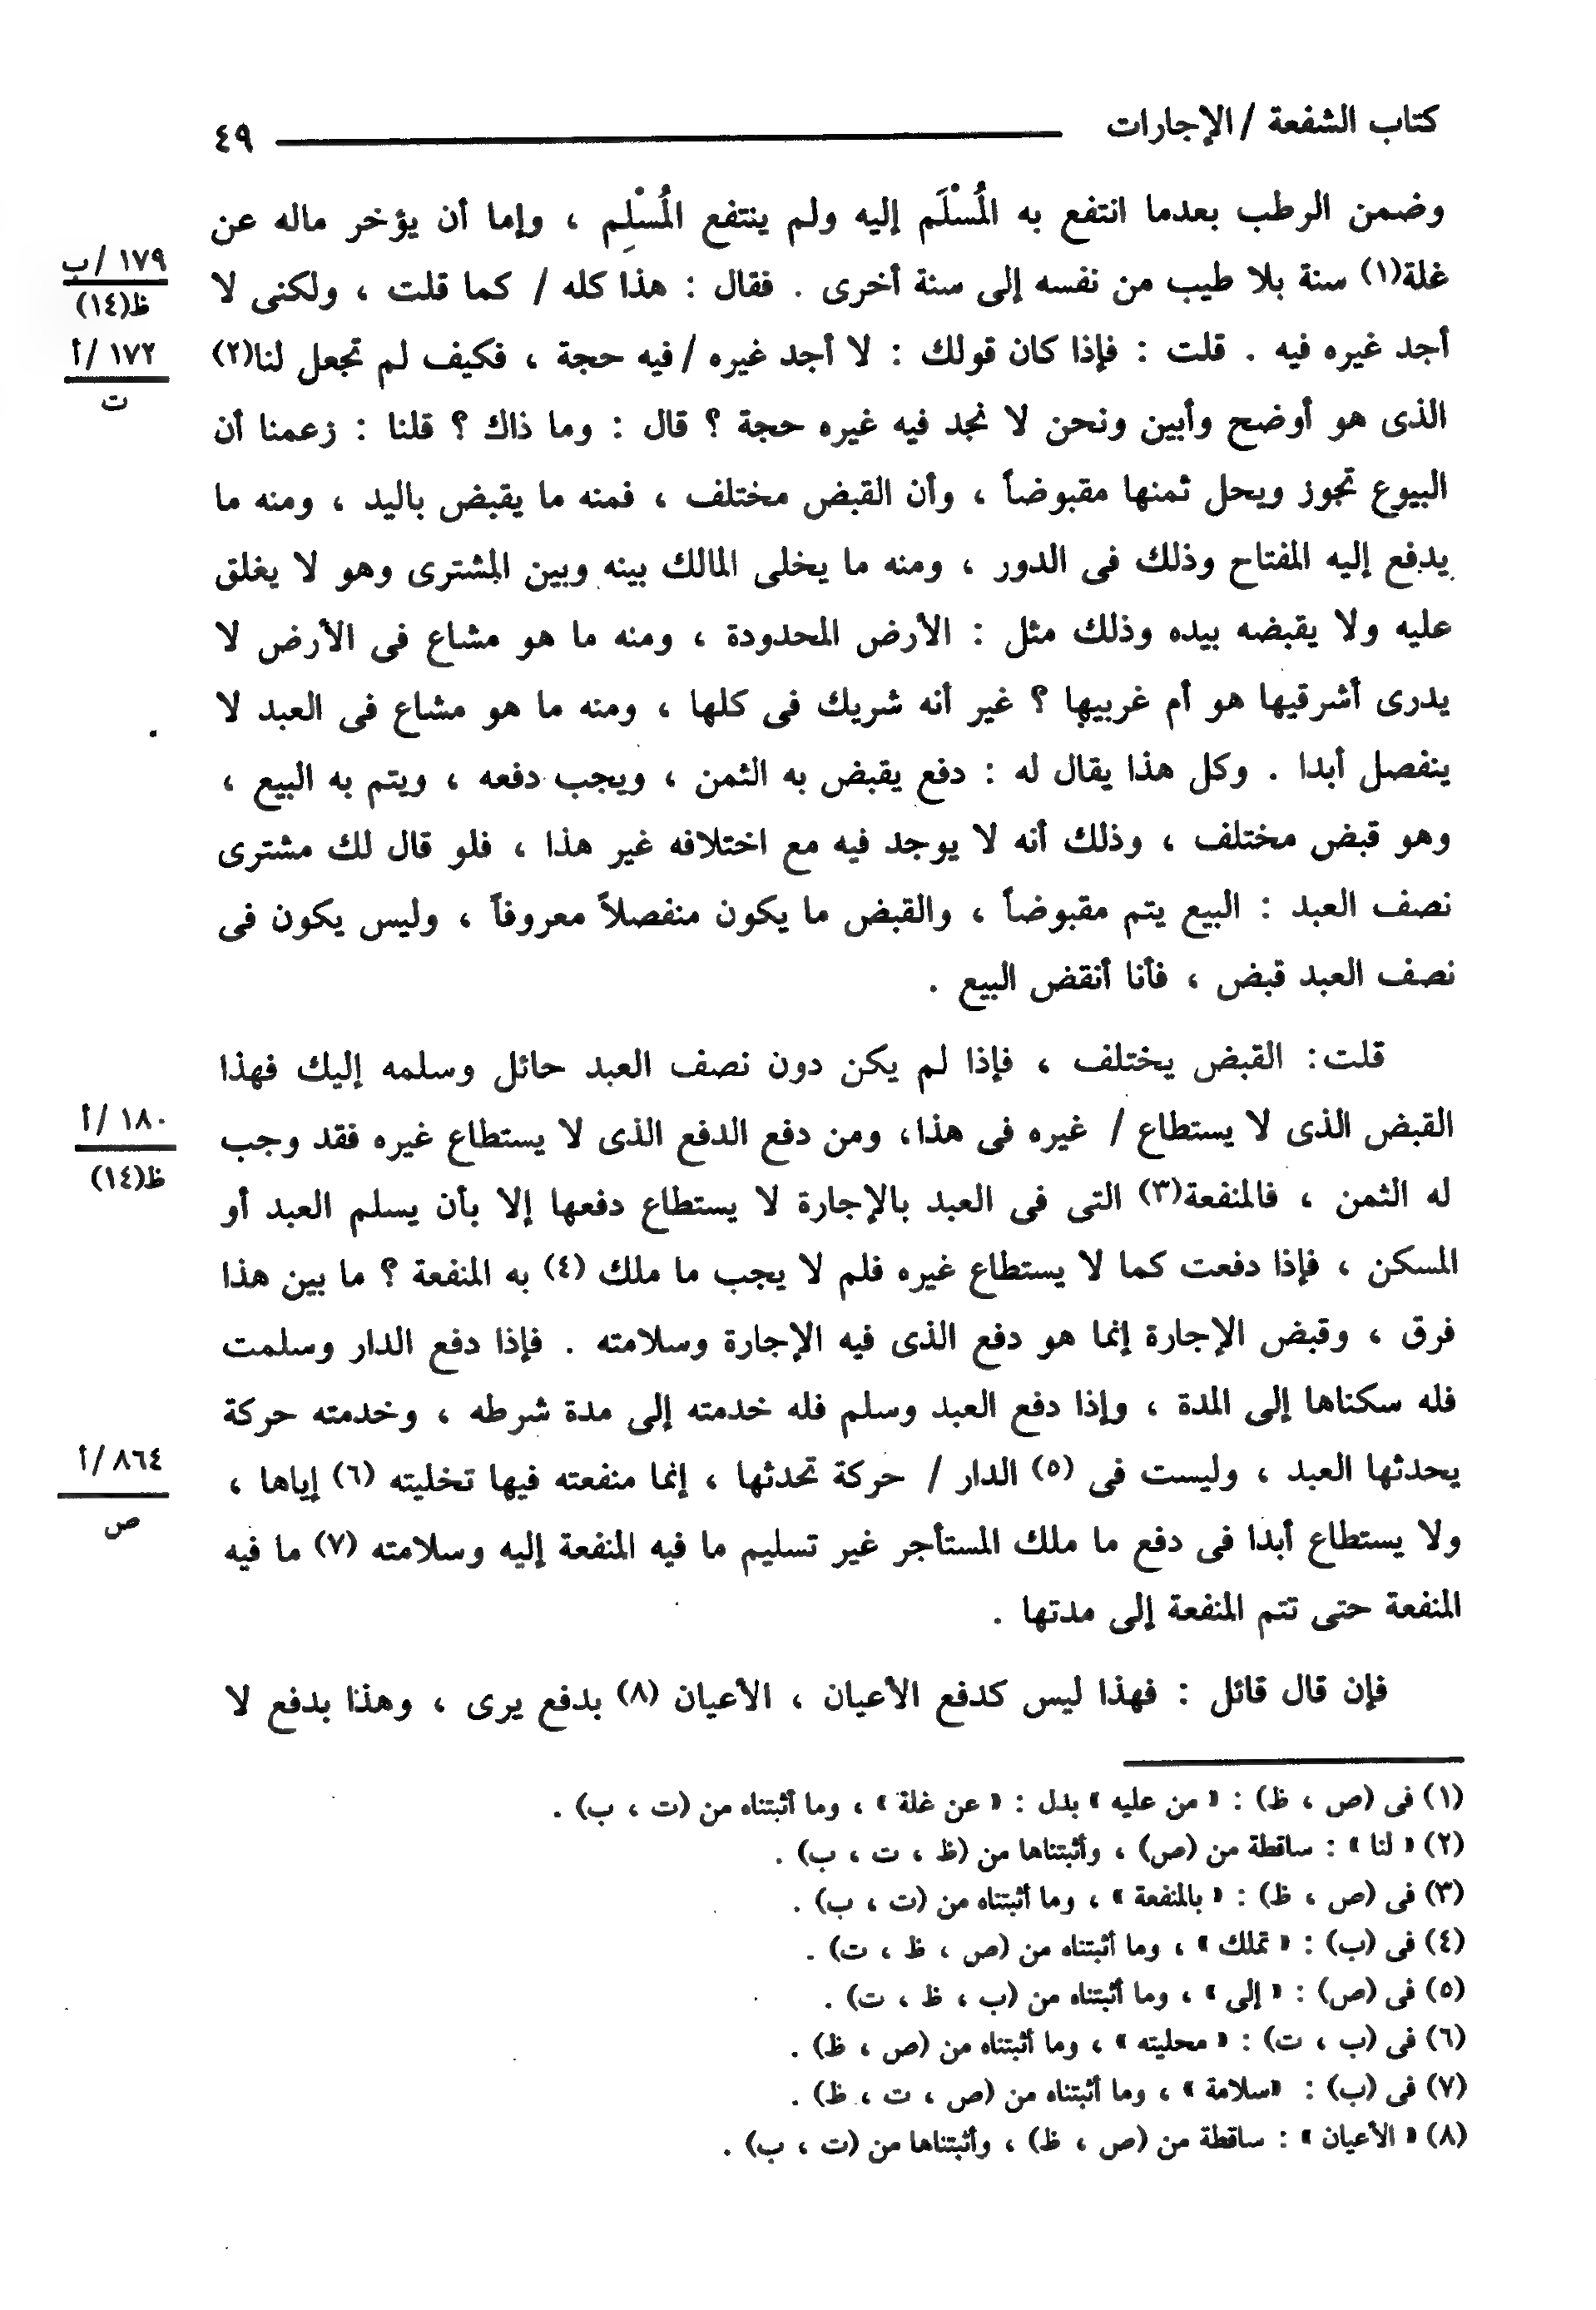 كتاب الشفعة / الإجارات ٤٩
وضمن الرطب بعدما انتفع به المُسْلَم إليه ولم ينتفع المُسْلِم ، وإما أن يؤخر ماله عن
غلة(١) سنة بلا طيب من نفسه إلى سنة أخرى . فقال : هذا كله / كما قلت ، ولكنى لا
١٧٩ /ب
ظ(١٤)
أجد غيره فيه . قلت : فإذا كان قولك : لا أجد غيره / فيه حجة ، فكيف لم تجعل لنا(٢)
١٧٢ /أ
ت
الذى هو أوضح وأبين ونحن لا نجد فيه غيره حجة ؟ قال : وما ذاك ؟ قلنا : زعمنا أن
البيوع تجوز ويحل ثمنها مقبوضاً ، وأن القبض مختلف ، فمنه ما يقبض باليد ، ومنه ما
يدفع إليه المفتاح وذلك فى الدور ، ومنه ما يخلى المالك بينه وبين المشترى وهو لا يغلق
عليه ولا يقبضه بيده وذلك مثل : الأرض المحدودة ، ومنه ما هو مشاع فى الأرض لا
يدرى أشرقيها هو أم غربيها ؟ غير أنه شريك فى كلها ، ومنه ما هو مشاع فى العبد لا
ينفصل أبدا . وكل هذا يقال له : دفع يقبض به الثمن ، ويجب دفعه ، ويتم به البيع ،
وهو قبض مختلف ، وذلك أنه لا يوجد فيه مع اختلافه غير هذا ، فلو قال لك مشترى
نصف العبد : البيع يتم مقبوضاً ، والقبض ما يكون منفصلاً معروفاً ، وليس يكون فى
نصف العبد قبض ، فأنا أنقض البيع .
قلت: القبض يختلف ، فإذا لم يكن دون نصف العبد حائل وسلمه إليك فهذا
القبض الذى لا يستطاع / غيره فى هذا، ومن دفع الدفع الذى لا يستطاع غيره فقد وجب
١٨٠ /أ
ظ(١٤)
له الثمن ، فالمنفعة(٣) التى فى العبد بالإجارة لا يستطاع دفعها إلا بأن يسلم العبد أو
المسكن ، فإذا دفعت كما لا يستطاع غيره فلم لا يجب ما ملك (٤) به المنفعة ؟ ما بين هذا
فرق ، وقبض الإجارة إنما هو دفع الذى فيه الإجارة وسلامته . فإذا دفع الدار وسلمت
فله سكناها إلى المدة ، وإذا دفع العبد وسلم فله خدمته إلى مدة شرطه ، وخدمته حركة
يحدثها العبد ، وليست فى (٥) الدار / حركة تحدثها ، إنما منفعته فيها تخليته (٦) إياها ،
٨٦٤ /أ
ص
ولا يستطاع أبدا فى دفع ما ملك المستأجر غير تسليم ما فيه المنفعة إليه وسلامته (٧) ما فيه
المنفعة حتى تتم المنفعة إلى مدتها .
فإن قال قائل : فهذا ليس كدفع الأعيان ، الأعيان (٨) بدفع يرى ، وهذا بدفع لا
(١) فى (ص ، ظ) : « من عليه » بدل : « عن غلة » ، وما أثبتناه من (ت ، ب) .
(٢) « لنا » : ساقطة من (ص) ، وأثبتناها من (ظ ، ت ، ب) .
(٣) فى (ص ، ظ) : « بالمنفعة » ، وما أثبتناه من (ت ، ب) .
(٤) فى (ب) : « تملك » ، وما أثبتناه من (ص ، ظ ، ت) .
(٥) فى (ص) : « إلى » ، وما أثبتناه من (ب ، ظ ، ت) .
(٦) فى (ب ، ت) : « محليته » ، وما أثبتناه من (ص ، ظ) .
(٧) فى (ب) : «سلامة » ، وما أثبتناه من (ص ، ت ، ظ) .
(٨) « الأعيان » : ساقطة من (ص ، ظ) ، وأثبتناها من (ت ، ب) .